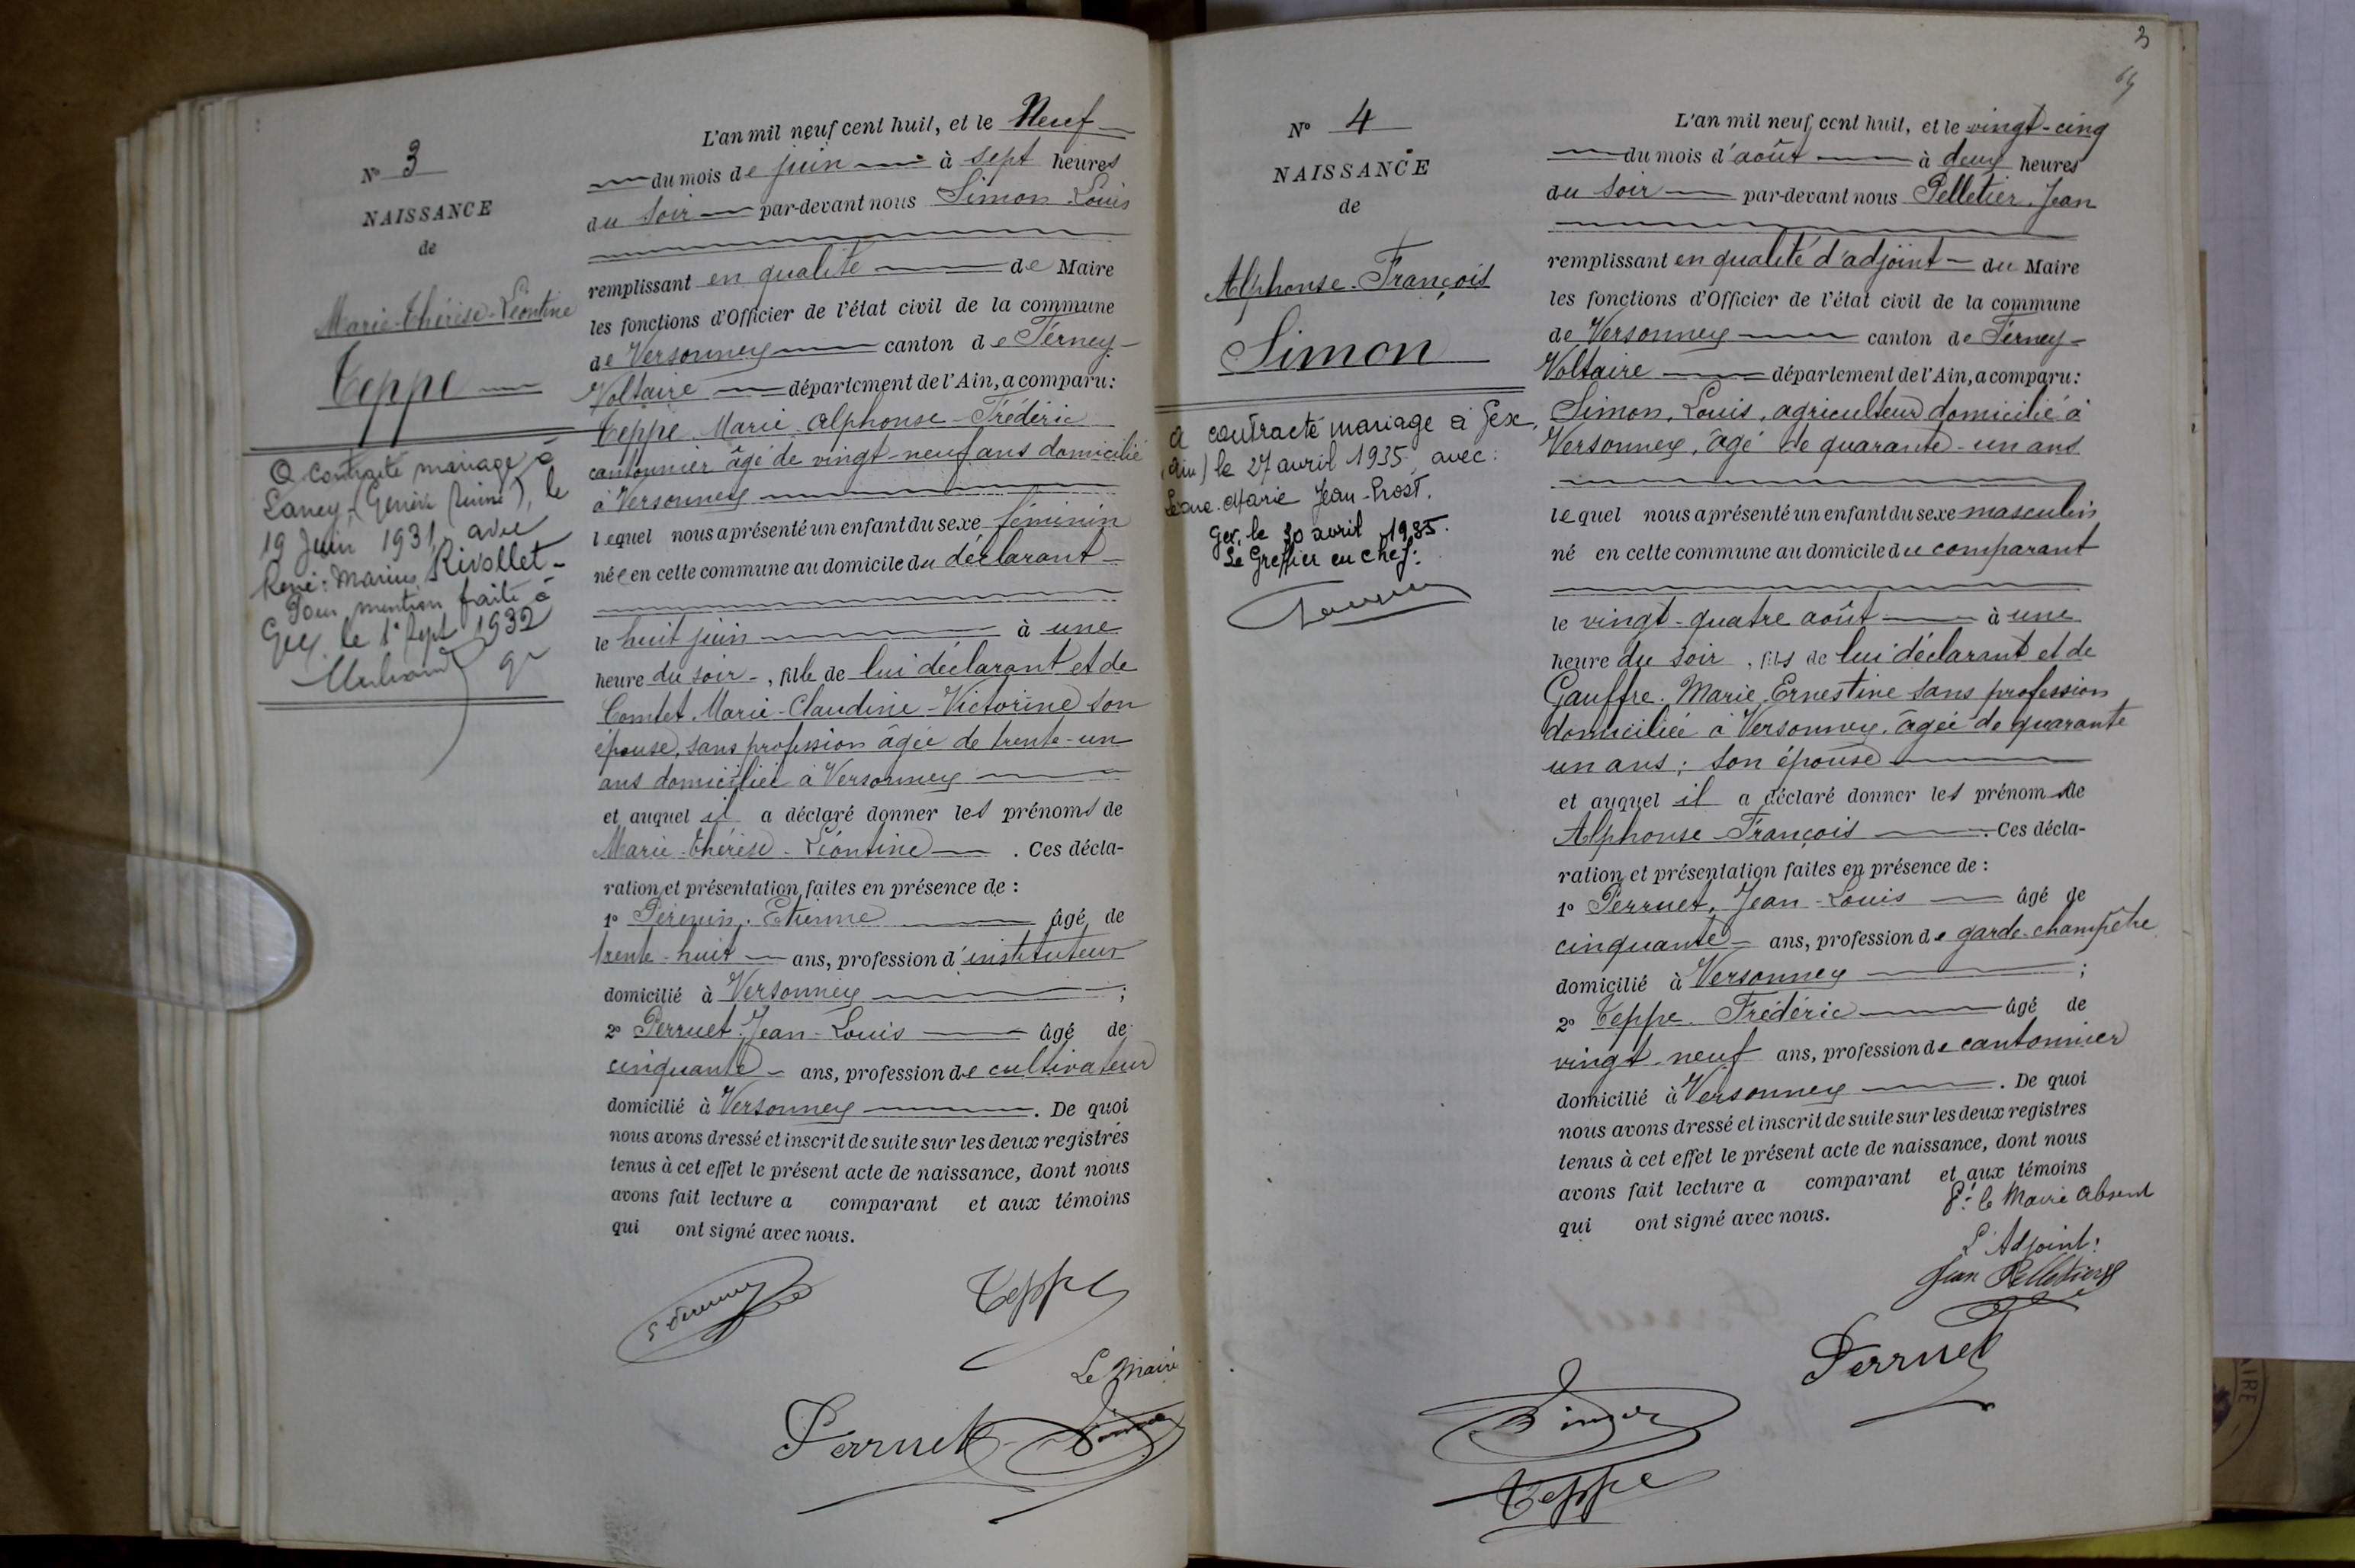 N° 3
NAISSANCE
de
Marie-Thérèse-Léontine
Teppe
A contracté mariage à
Lancy (Genève Suisse), le
19 Juin 1931, avec
René-Marius Rivollet-
Pour mention faite à
Gex, le 1er Sept 1932
L'an mil neuf cent huit, et le Neuf
du mois de juin à sept heures
du soir par-devant nous Simon Louis
remplissant en qualité de Maire
les fonctions d'Officier de l'état civil de la commune
de Versonnex canton de Ferney-
Voltaire département de l'Ain, a comparu:
Teppe Marie Alphonse-Frédéric
cantonnier âgé de vingt-neuf ans domicilié
à Versonnex
lequel nous a présenté un enfant du sexe féminin
née en cette commune au domicile du déclarant
le huit juin à une
heure du soir, fille de lui déclarant et de
Comtet Marie-Claudine-Victorine son
épouse, sans profession âgée de trente-un
ans domiciliée à Versonnex
et auquel il a déclaré donner les prénoms de
Marie-Thérèse-Léontine. Ces décla-
ration et présentation faites en présence de :
1° Etienne âgé de
trente-huit ans, profession d'instituteur
domicilié à Versonnex ;
2° Perruet Jean-Louis âgé de
cinquante ans, profession de cultivateur
domicilié à Versonnex. De quoi
nous avons dressé et inscrit de suite sur les deux registres
tenus à cet effet le présent acte de naissance, dont nous
avons fait lecture a comparant et aux témoins
qui ont signé avec nous.
Teppe
Le Maire
Perruet Simon
3
N° 4
NAISSANCE
de
Alphonse-François
Simon
A contracté mariage à Gex,
(Ain) le 27 avril 1935, avec:
Marie Jean-Prost.
Gex, le 30 avril 1935.
Le Greffier en chef:
L'an mil neuf cent huit, et le vingt-cinq
du mois d'août à deux heures
du soir par-devant nous Pelletier Jean
remplissant en qualité d'adjoint du Maire
les fonctions d'Officier de l'état civil de la commune
de Versonnex canton de Ferney-
Voltaire département de l'Ain, a comparu:
Simon, Louis, agriculteur domicilié à
Versonnex, âgé de quarante-un ans
lequel nous a présenté un enfant du sexe masculin
né en cette commune au domicile du comparant
le vingt-quatre août à une
heure du soir, fils de lui déclarant et de
Gauffre Marie Ernestine sans profession
domiciliée à Versonnex, âgée de quarante
un ans ; son épouse
et auquel il a déclaré donner les prénoms de
Alphonse-François. Ces décla-
ration et présentation faites en présence de :
1° Perruet, Jean-Louis âgé de
cinquante ans, profession de garde-champêtre
domicilié à Versonnex ;
2° Teppe Frédéric âgé de
vingt-neuf ans, profession de cantonnier
domicilié à Versonnex. De quoi
nous avons dressé et inscrit de suite sur les deux registres
tenus à cet effet le présent acte de naissance, dont nous
avons fait lecture a comparant et aux témoins
qui ont signé avec nous.
Pr le Maire absent
L'Adjoint:
Jean Pelletier
Perruet
Simon
Teppe
AIRE